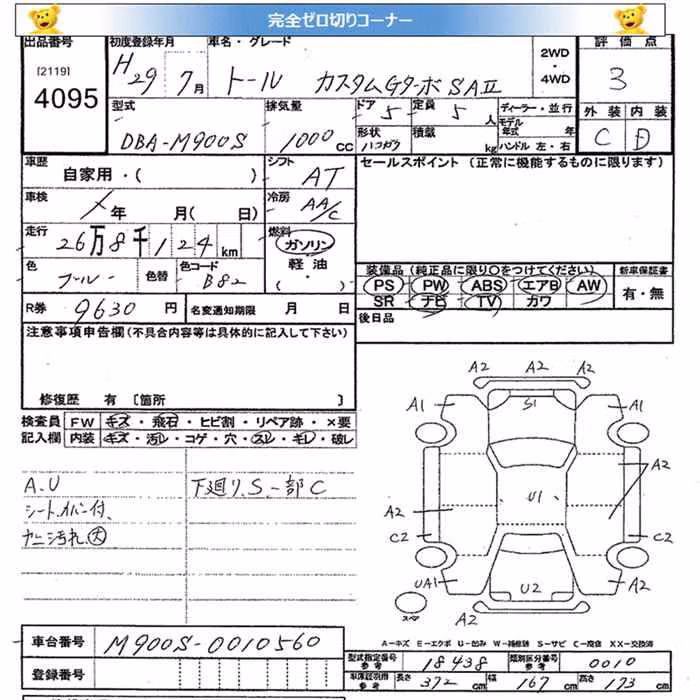 完全ゼロ切りコーナー
出品番号 初度登録年月 車名・グレード 2WD・4WD 評価点
[2119]
4095
H29 7月 トール カスタムGターボSAⅡ 3
型式 排気量 ドア 5 定員 5人 ディーラー・並行 外装 内装
DBA-M900S 1000CC 形状 ハコガタ 積載 kg モデル年式 年 C D
ハンドル 左・右
車歴 自家用・( ) シフト AT セールスポイント (正常に機能するものに限ります)
車検 年 月( 日) 冷房 AA/C
走行 26万8千124km 燃料 ガソリン
軽油
・( )
色 ブルー 色替 色コード B82
装備品 (純正品に限り○をつけてください) 新車保証書
PS PW ABS エアB AW 有・無
SR ナビ TV カワ
R券 9630円 名変通知期限 月 日 後日品
注意事項申告欄(不具合内容等は具体的に記入して下さい)
修復歴 有 [箇所 ]
検査員 FW キズ・飛石・ヒビ割・リペア跡・×要
記入欄 内装 キズ・汚レ・コゲ・穴・スレ・キレ・破レ
A.U 下廻り、S一部C
シートカバー付、
ヤニ汚れ、大
A2 A2 A2
A1 S1 A1
A2
A2 U1
C2 C2
UA1 U2 A2
スペア A2
A-キズ E-エクボ U-凹み W-補修跡 S-サビ C-腐食 XX-交換済
車台番号 M900S-0010560
型式指定番号 参考 18438 類別区分番号 参考 0010
登録番号
車庫証明用 参考 長さ 372cm 幅 167cm 高さ 173cm